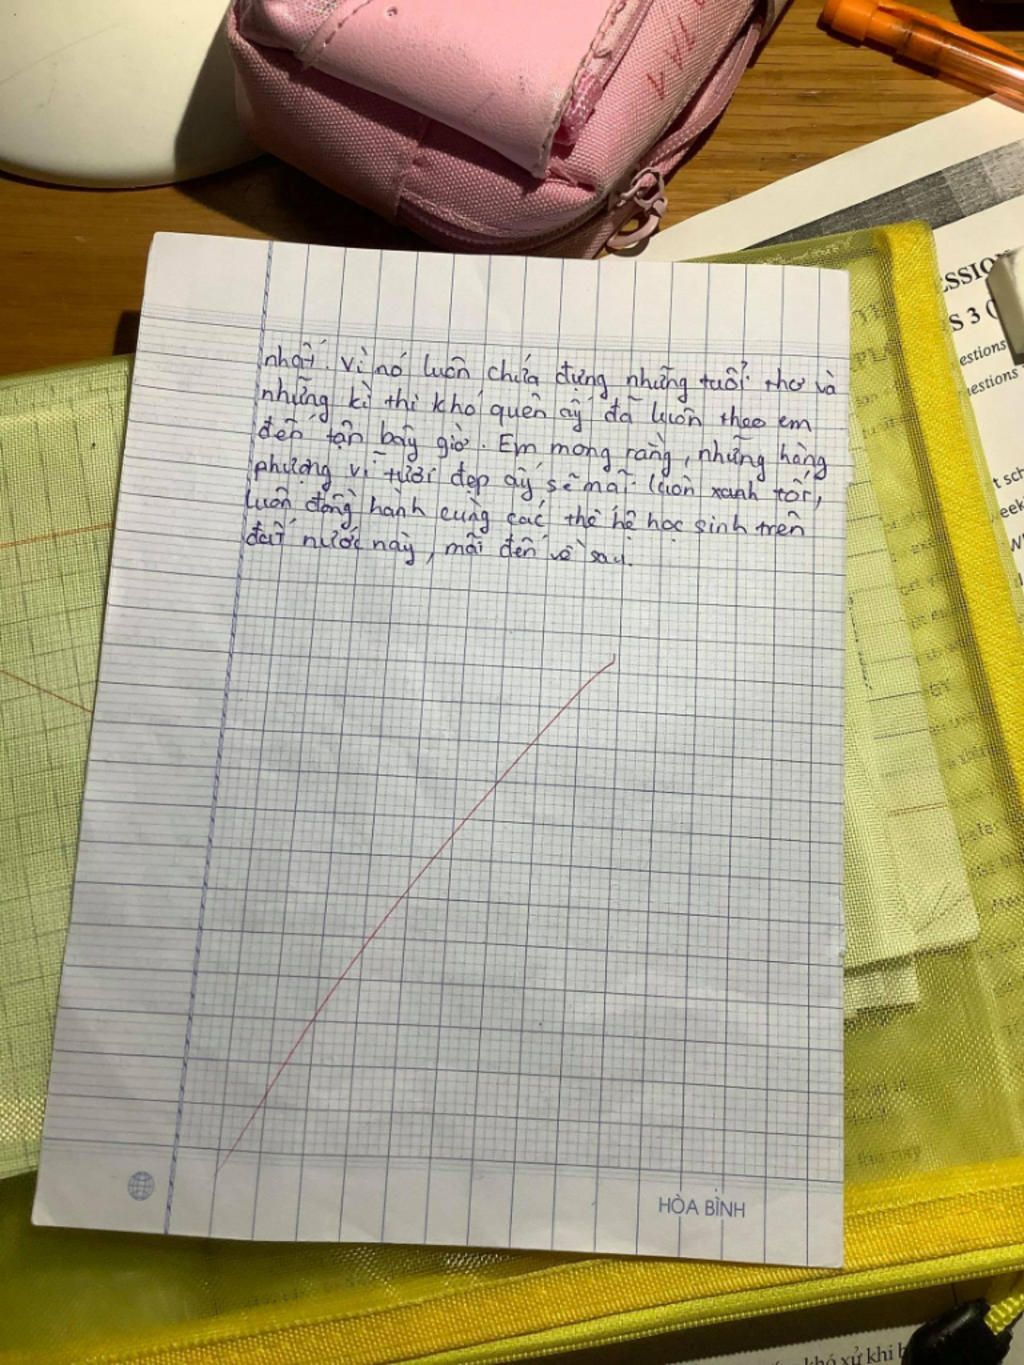 nhất. Vì nó luôn chứa đựng những tuổi thơ và
những kì thi khó quên ấy đã luôn theo em
đến tận bây giờ. Em mong rằng, những hàng
phượng vĩ tươi đẹp ấy sẽ mãi luôn xanh tốt,
luôn đồng hành cùng các thế hệ học sinh trên
đất nước này, mãi đến về sau.
HÒA BÌNH
ESSION
S 3 (
estions
t sch
eek
khó xử khi